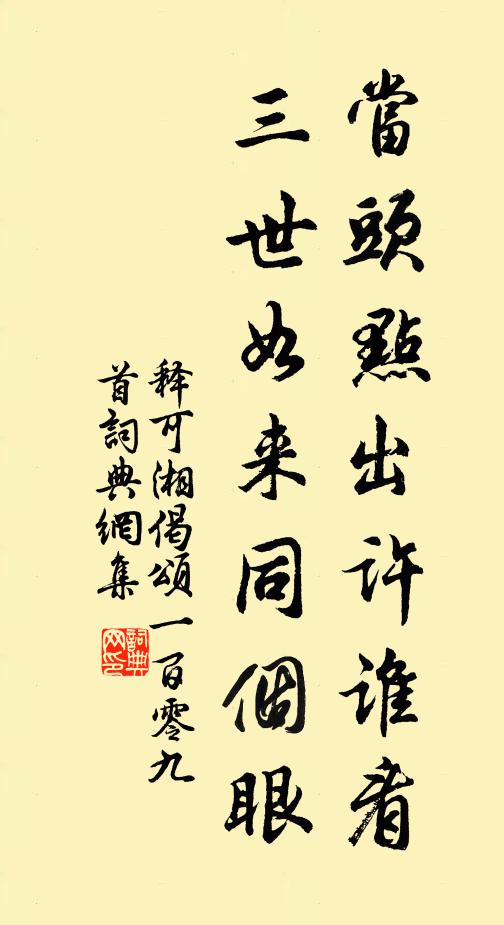 當頭點出許誰看
三世如来同個眼
释可湘偈頌一百零九
首詞典網集
詞典网印